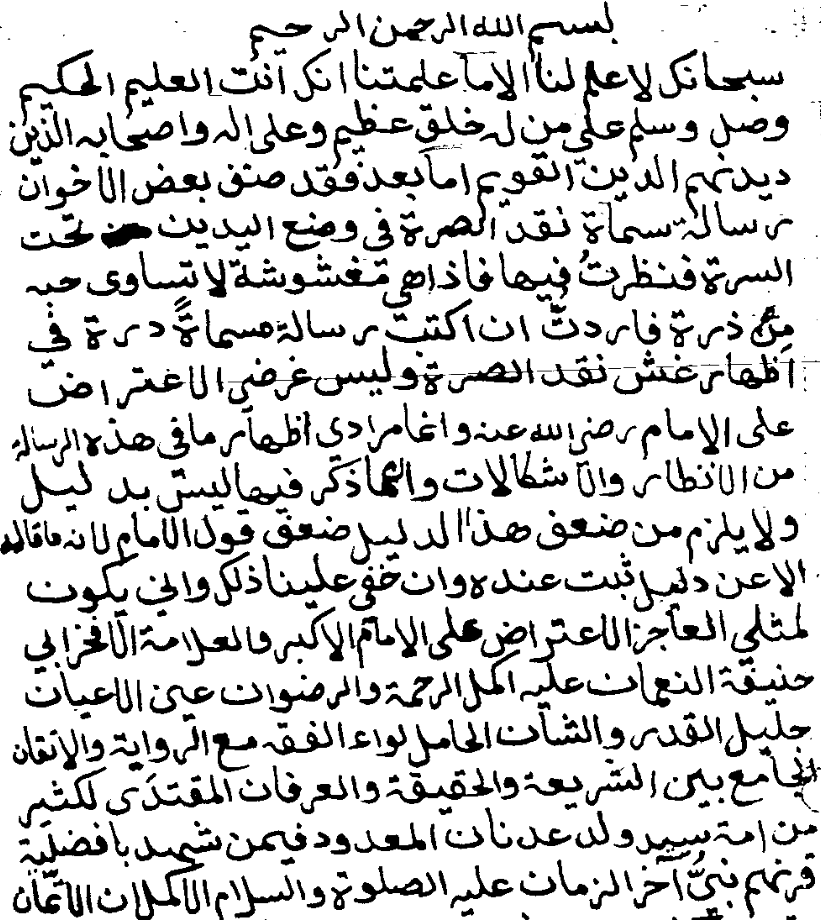 بسم الله الرحمن الرحيم
سبحانك لا علم لنا الا ما علمتنا انك انت العليم الحكيم
وصل وسلم على من له خلق عظيم وعلى اله واصحابه الذين
ديدنهم الدين القويم اما بعد فقد صنف بعض الاخوان
رسالة سماة نقد الصرة في وضع اليدين تحت
السرة فنظرت فيها فاذا هي مغشوشة لا تساوى حبه
من ذرة فاردت ان اكتب رسالة مسماة درة في
اظهار غش نقد الصرة وليس غرضي الاعتراض
على الامام رضى الله عنه وانما مرادى اظهار ما في هذه الرسالة
من الانظار والاشكالات وانما ذكر فيها ليس بدليل
ولا يلزم من ضعف هذا الدليل ضعف قول الامام لانه ما قاله
الا عن دليل ثبت عنده وان خفي علينا ذلك واني يكون
لمثلي العاجز الاعتراض على الامام الاكبر والعلامة الافخر ابي
حنيفة النعمان عليه اكمل الرحمة والرضوان عين الاعيان
جليل القدر والشان الحامل لواء الفقه مع الرواية والاتقان
الجامع بين الشريعة والحقيقة والعرفان المقتدى لكثير
من امة سيد ولد عدنان المعدود فيمن شهد بافضلية
قرنهم نبي آخر الزمان عليه الصلوة والسلام الاكملان الاتمان